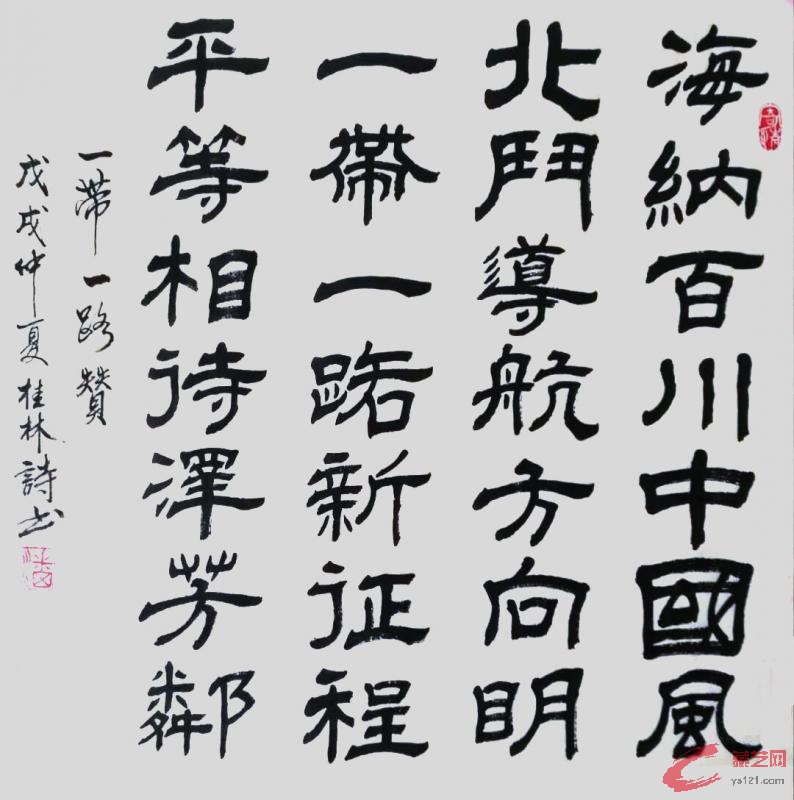 海納百川中國風
北鬥導航方向明
一帶一路新征程
平等相待澤芳鄰
一带一路贊
戊戌仲夏桂林詩书
藏艺网
ys121.com